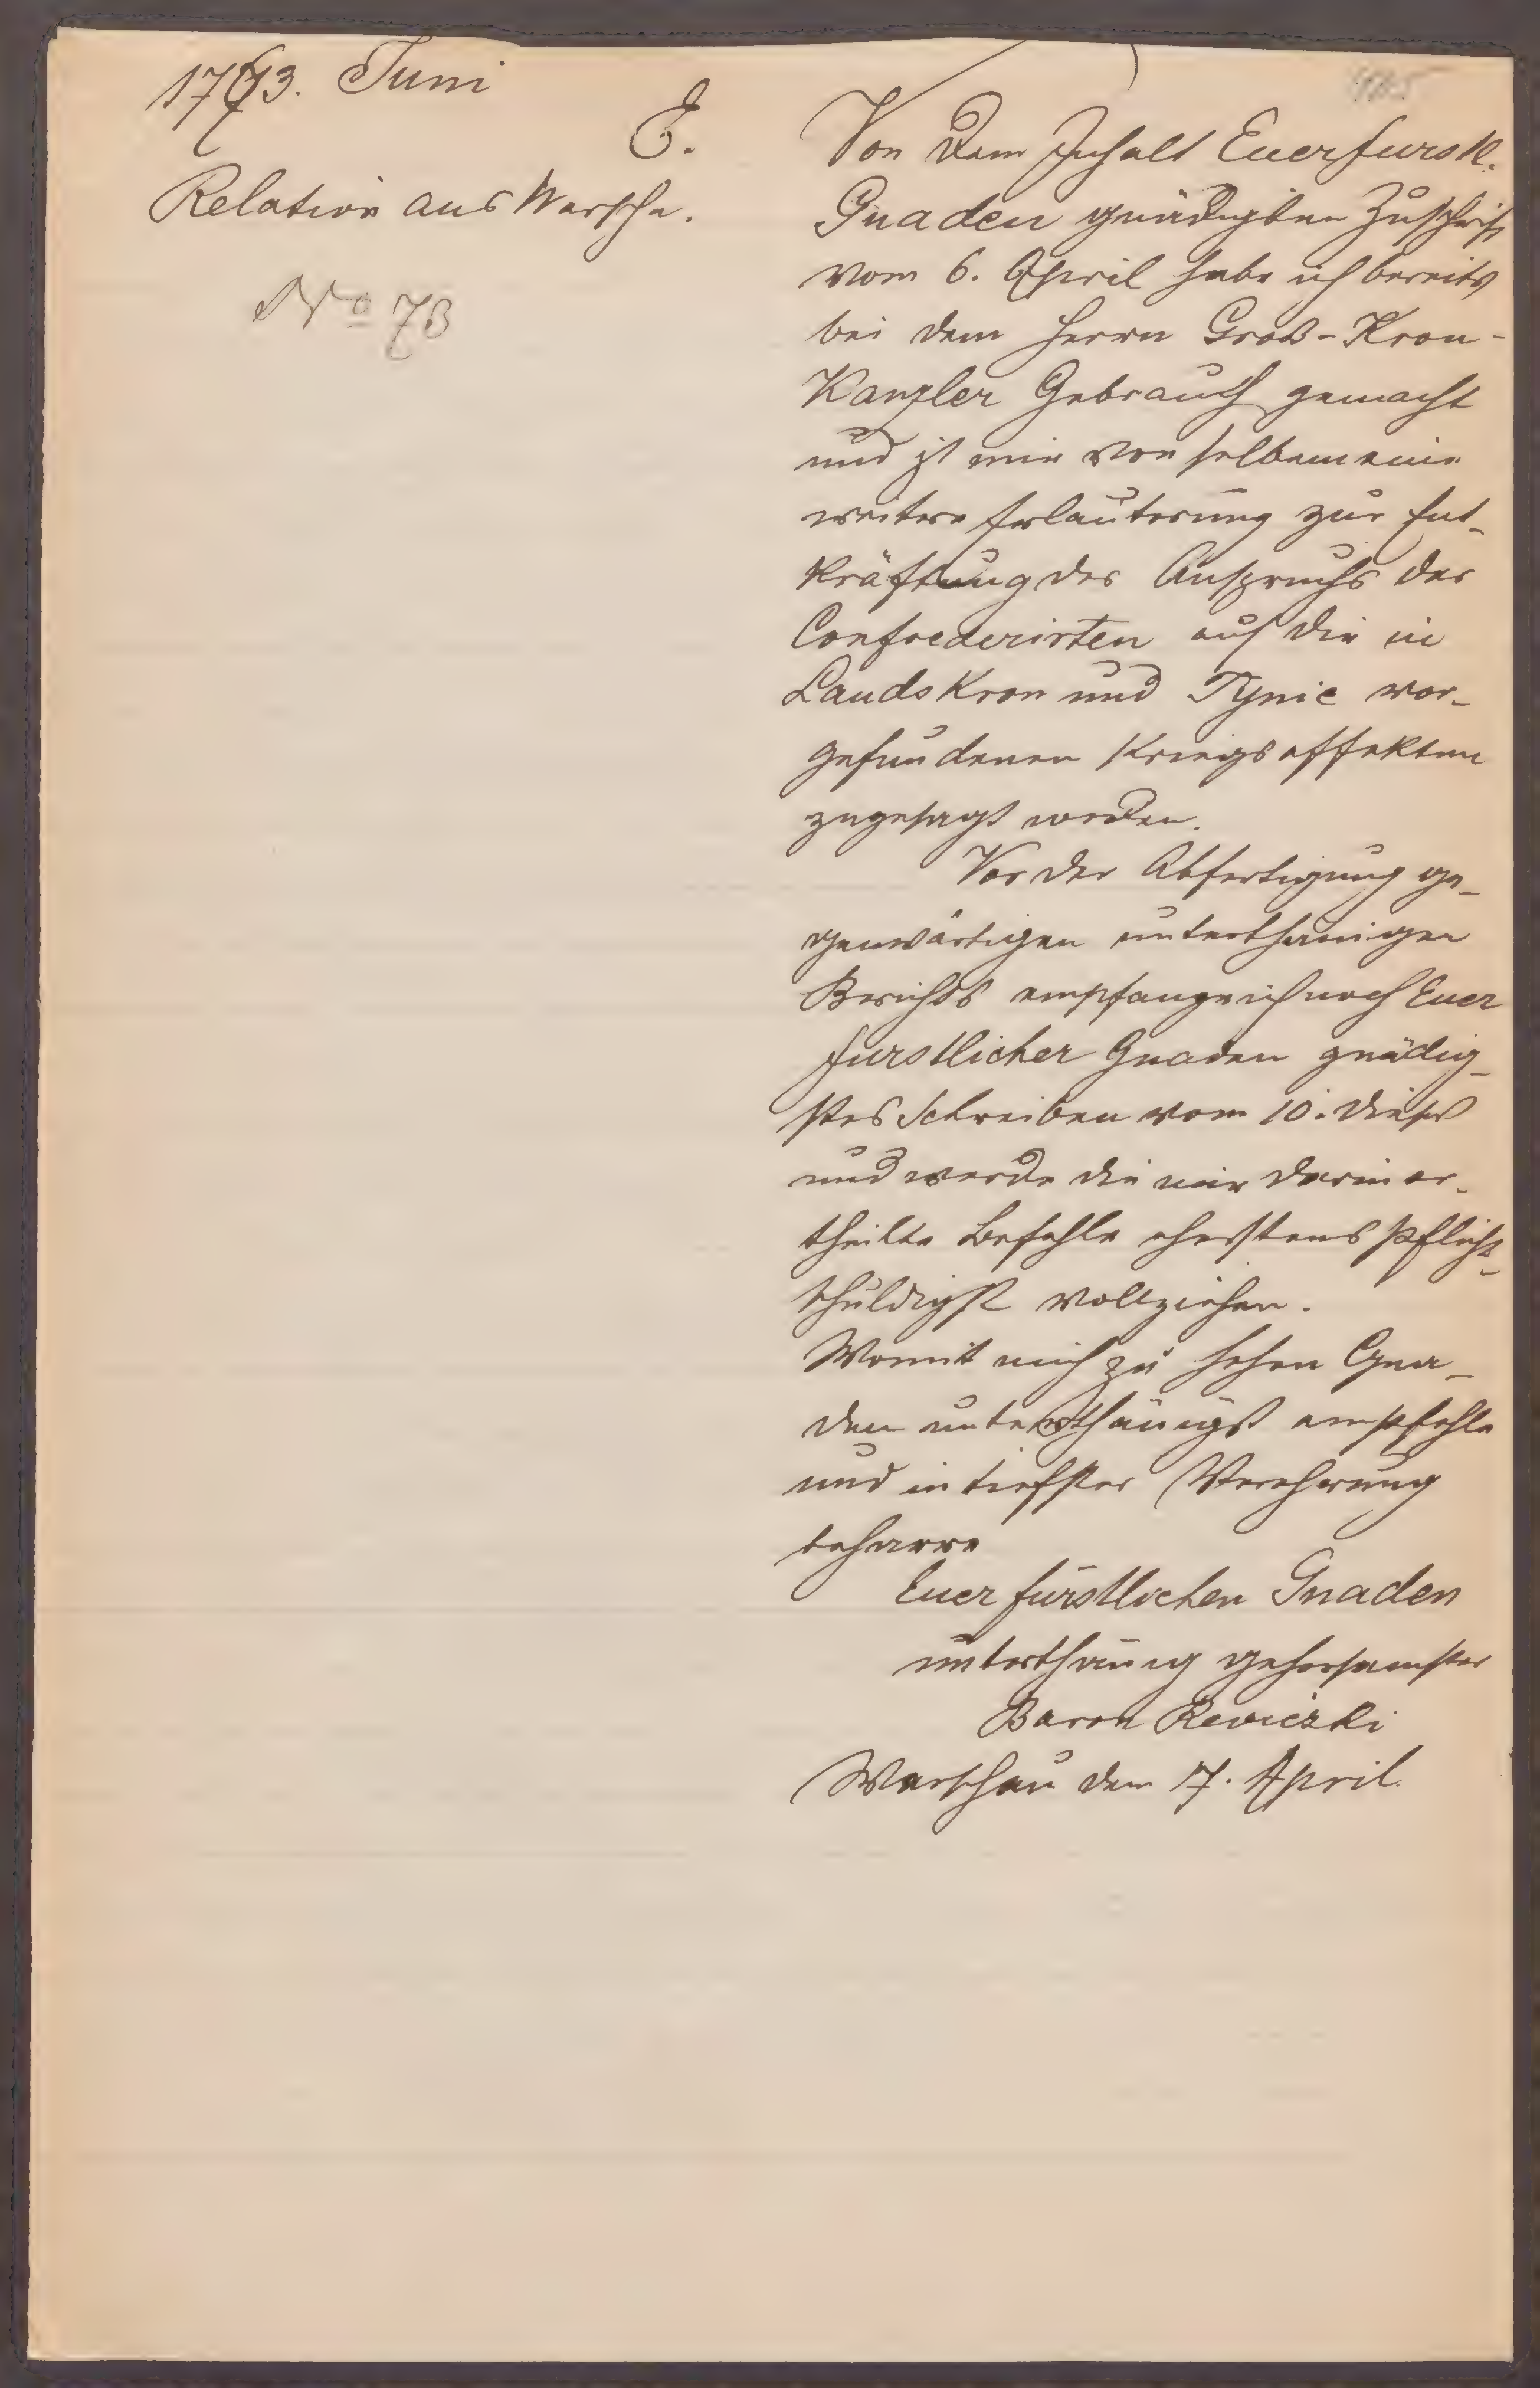 1773. Juni
E.
Relation aus Warscha.
No 73
Von dem Inhalt Euer furstl.
Gnaden gnädigsten Zuschrift
vom 6. April habe ich bereits
bei dem Herrn Groß-Kron-
Kanzler Gebrauch gemacht
und ist mir von selbem eine
weitere Erläuterung zur Ent-
kräftung des Anspruchs der
Confoederirten auf die in
Landskron und Tynie vor-
gefundenen Kriegseffekten
zugesagt worden.
Vor der Abfertigung ge-
genwärtigen unterthänigen
Berichts empfange ich noch Euer
furstlicher Gnaden gnädig-
stes Schreiben vom 10. dieses
und werde die mir darin er-
theilte Befehle ehestens pflicht-
schuldigst vollziehen.
Womit mich zu hohen Gna-
den unterthänigst empfehle
und in tiefster Verehrung
beharre
Euer fürstlichen Gnaden
unterthänig gehorsamster
Baron Reviczki
Warschau den 17. April.